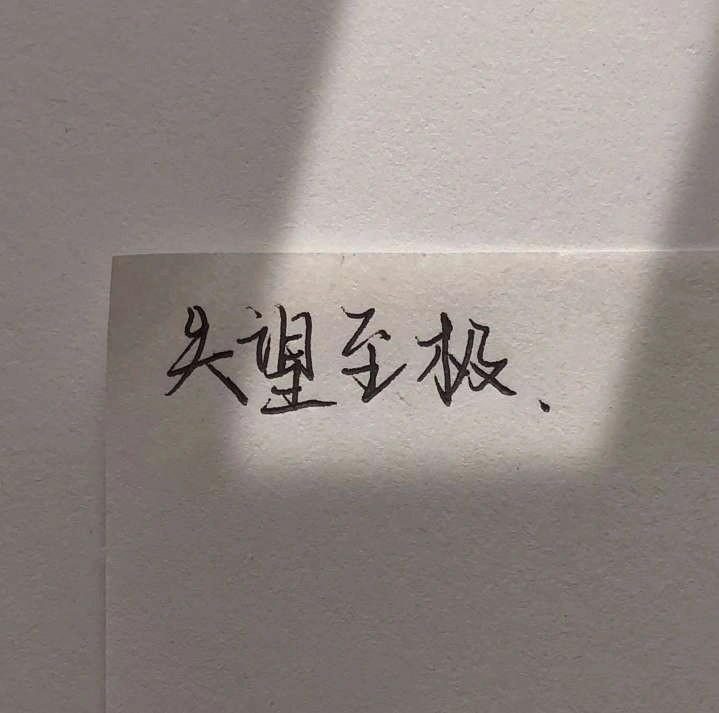 失望至极、